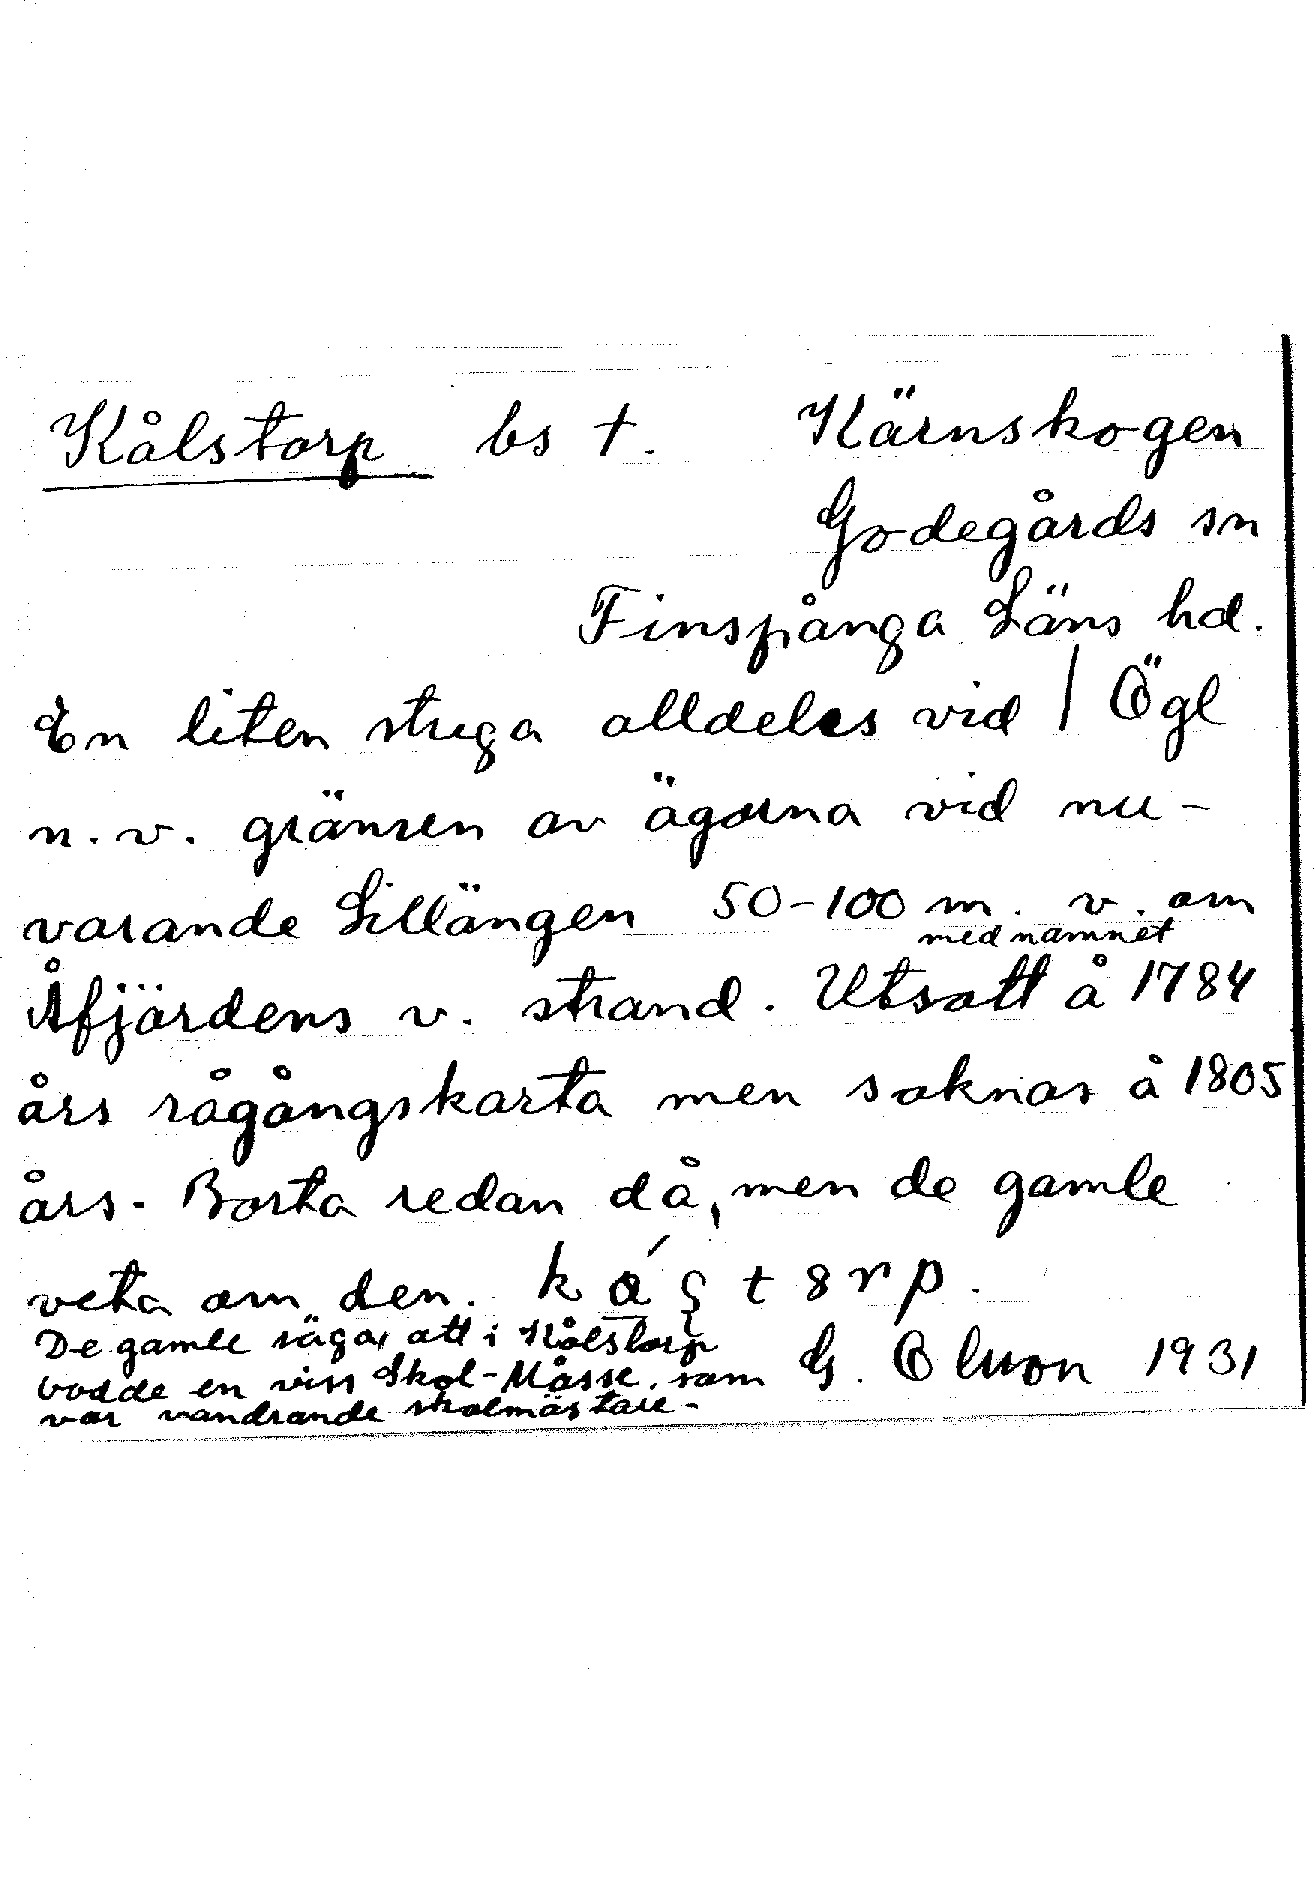 Kålstorp bs †. Kärnskogen
Godegårds sn
Finspånga Läns hd.
En liten stuga alldeles vid / Ögl
n. v. gränsen av ägorna vid nu-
varande Lillängen 50-100 m. v. om
med namnet
Åfjärdens v. strand. Utsatt å 1784
års rågångskarta men saknas å 1805
års. Borta redan då, men de gamle
veta om den.
De gamle säga, att i Kålstorp
bodde en viss Skol-Måsse, som G. Olsson 1931
var vandrande skolmästare.